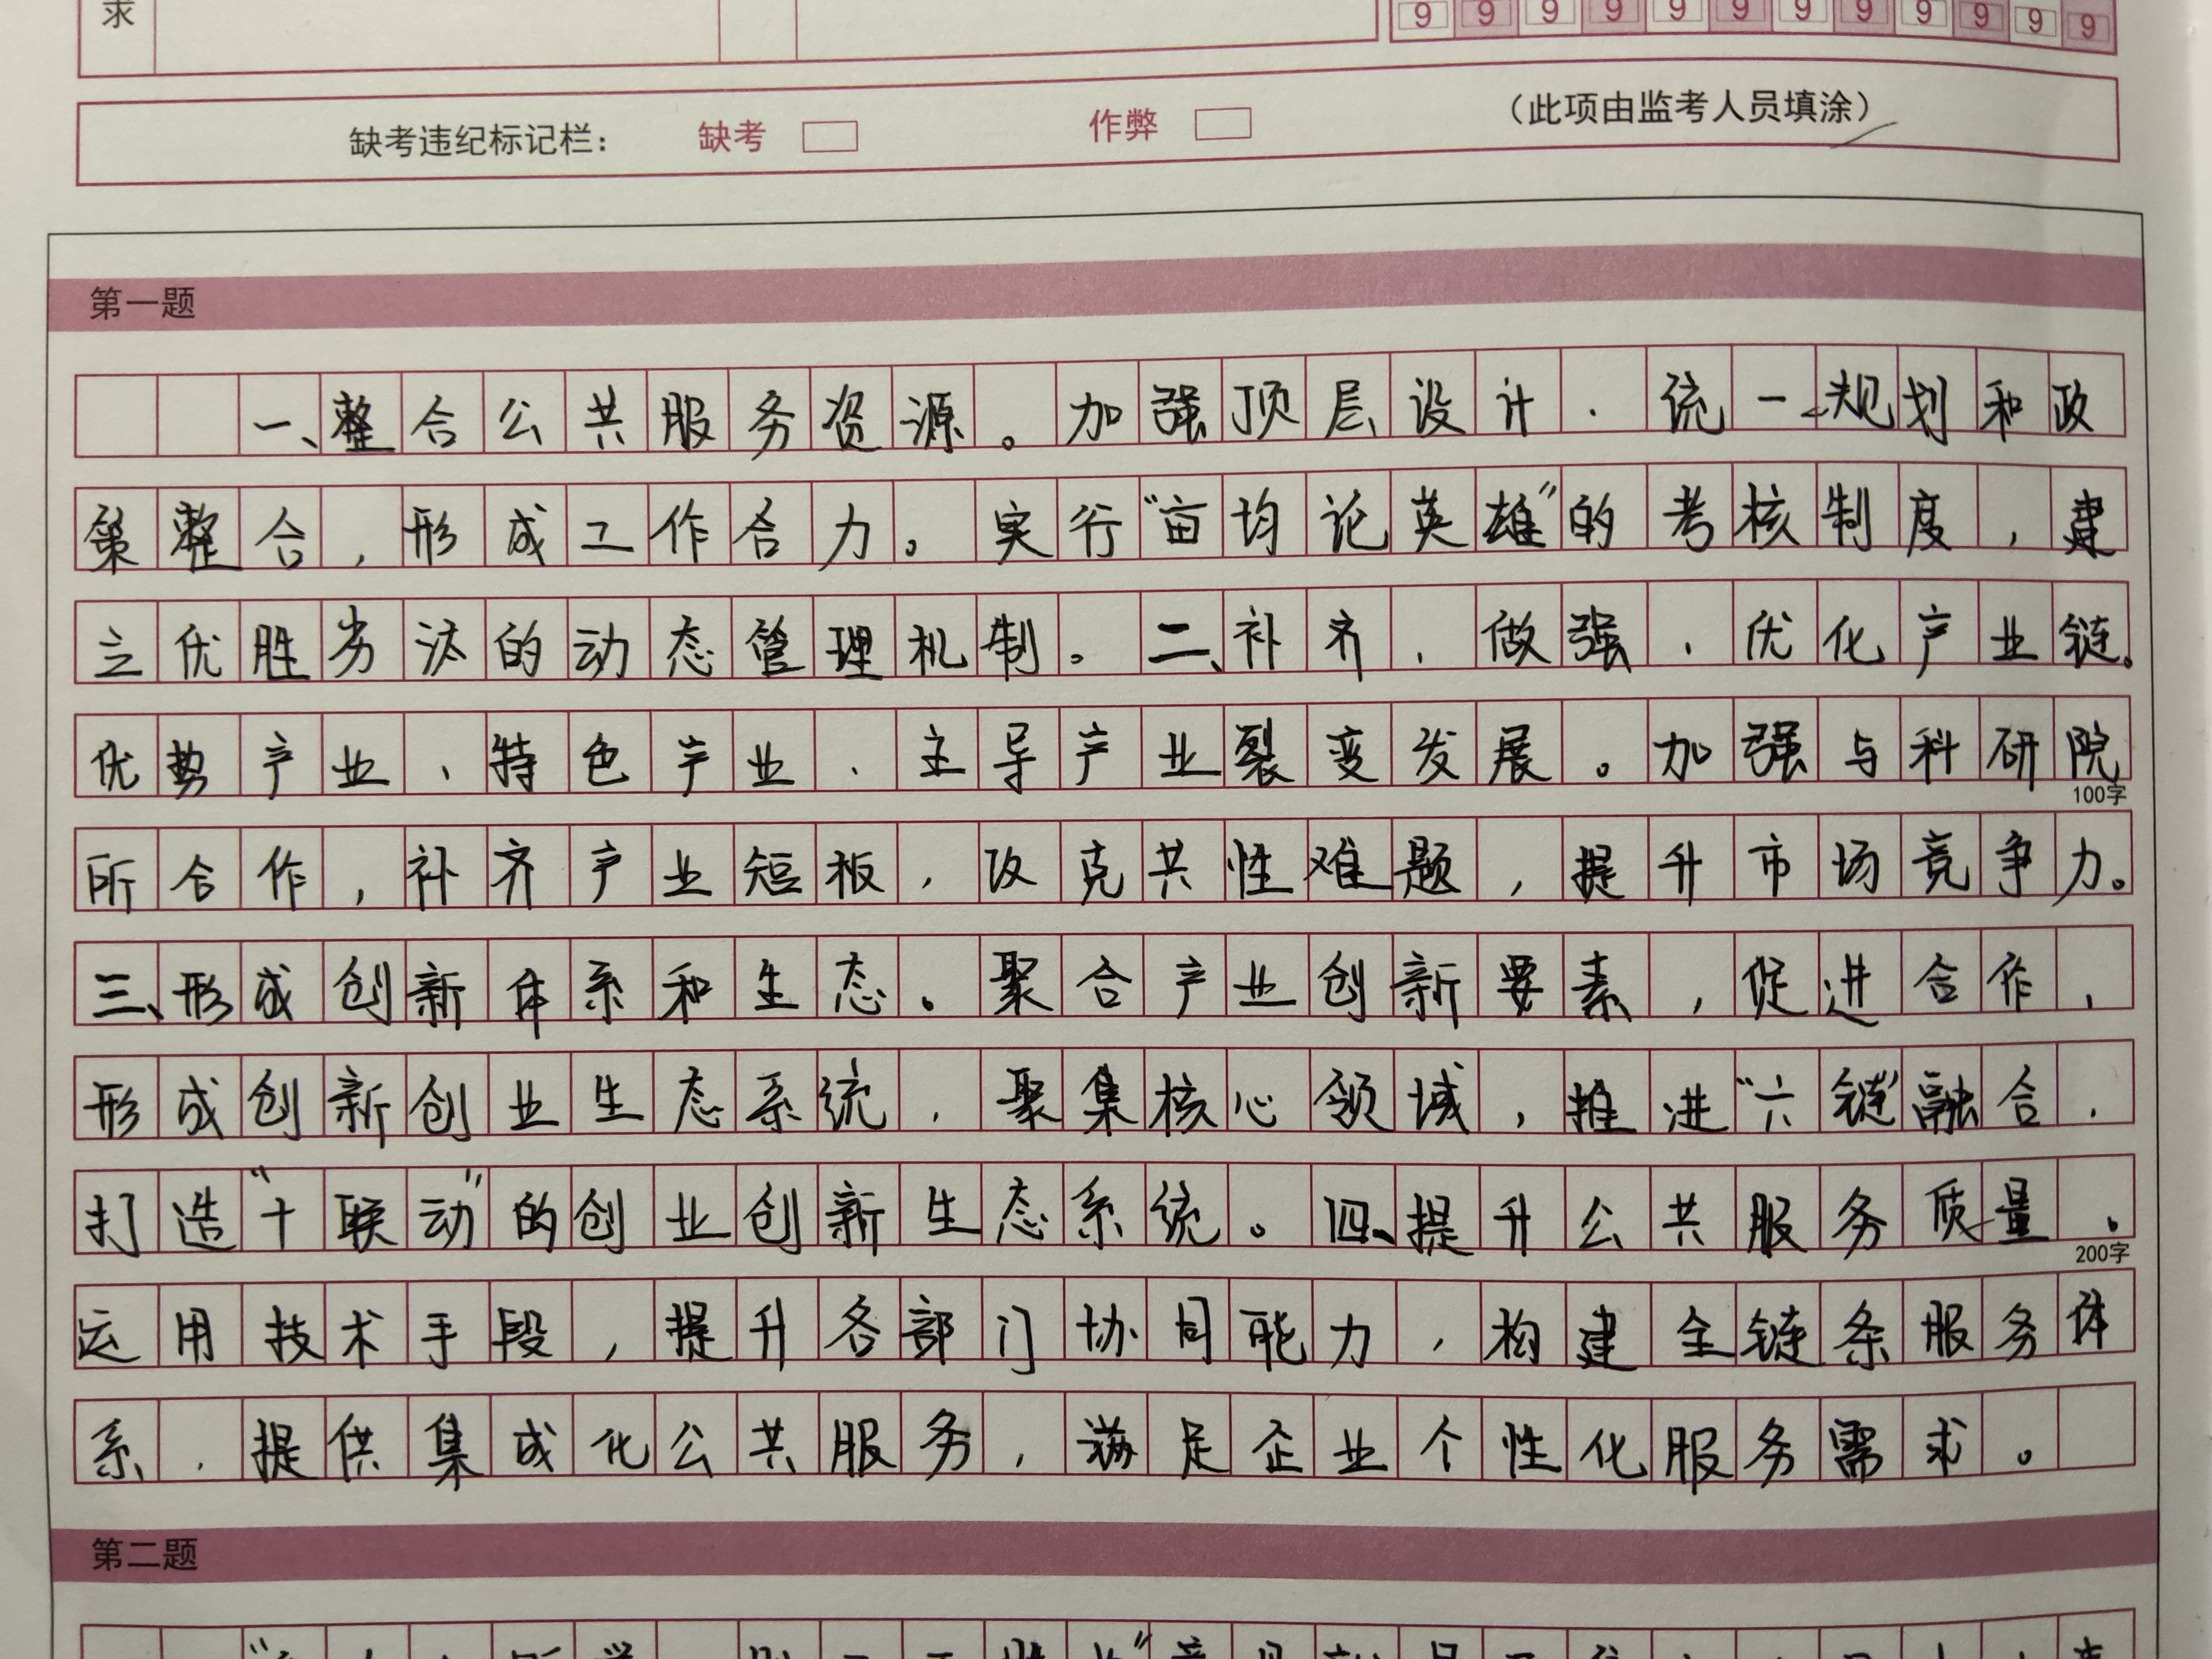 求
9 9 9 9 9 9 9 9 9 9 9 9
缺考违纪标记栏： 缺考 作弊 （此项由监考人员填涂）
第一题
一、整合公共服务资源。加强顶层设计、统一规划和政
策整合，形成工作合力。实行“亩均论英雄”的考核制度，建
立优胜劣汰的动态管理机制。二、补齐、做强、优化产业链。
优势产业、特色产业、主导产业裂变发展。加强与科研院
100字
所合作，补齐产业短板，攻克共性难题，提升市场竞争力。
三、形成创新体系和生态。聚合产业创新要素，促进合作，
形成创新创业生态系统，聚集核心领域，推进“六链”融合，
打造“十联动”的创业创新生态系统。四、提升公共服务质量。
200字
运用技术手段，提升各部门协同能力，构建全链条服务体
系，提供集成化公共服务，满足企业个性化服务需求。
第二题